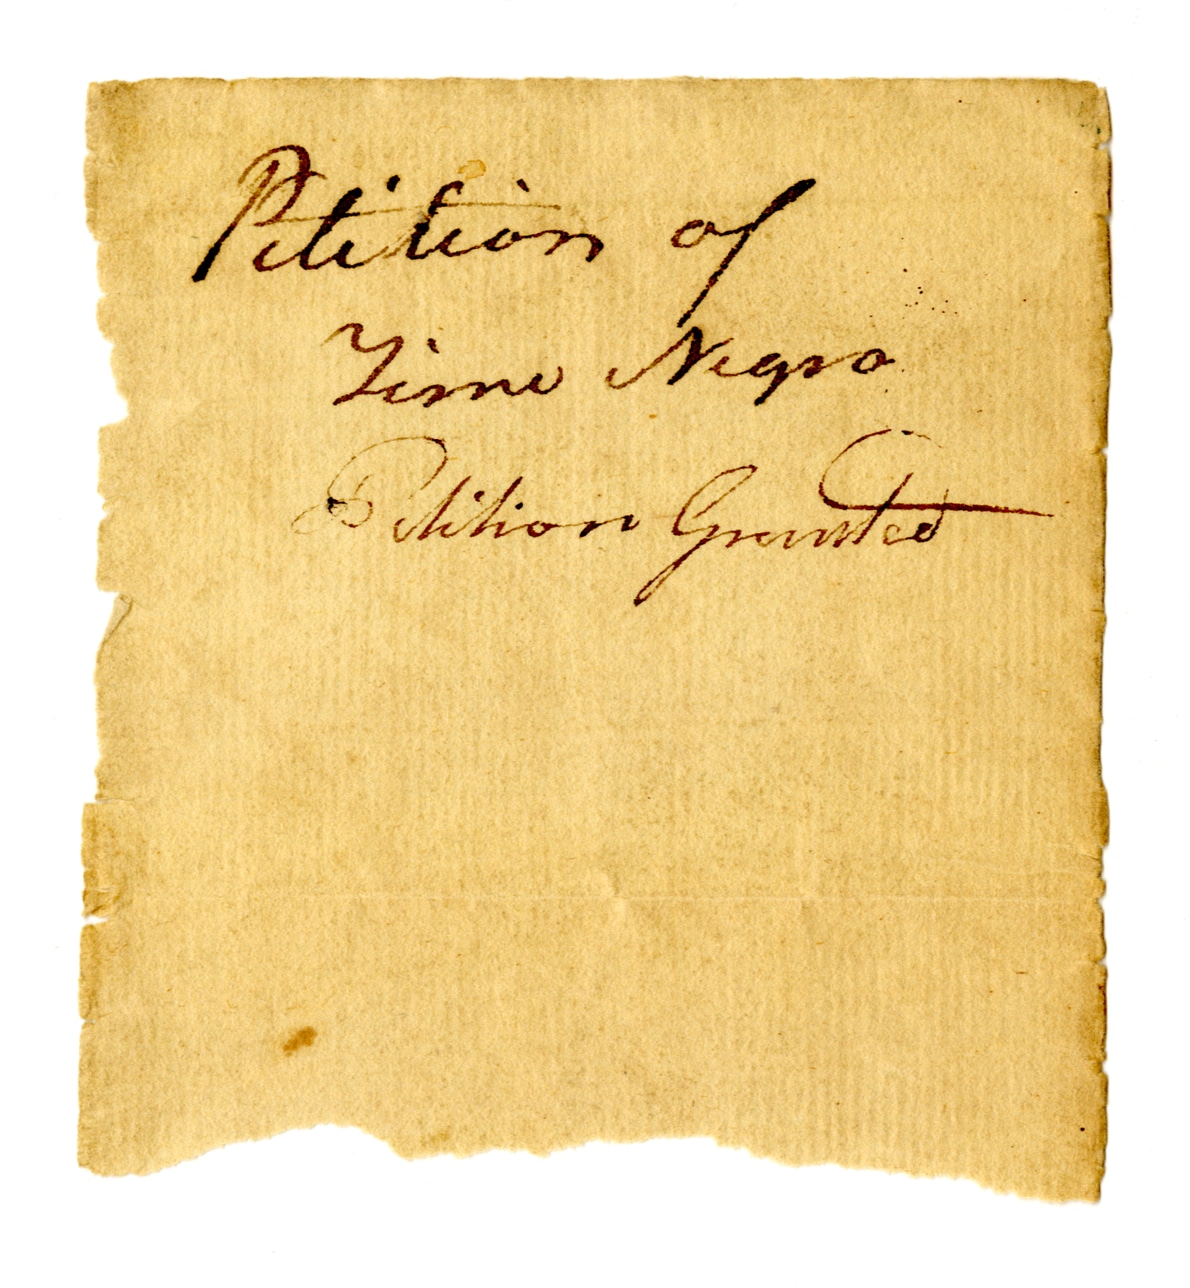 Petition of
Time Negro
Petition Granted